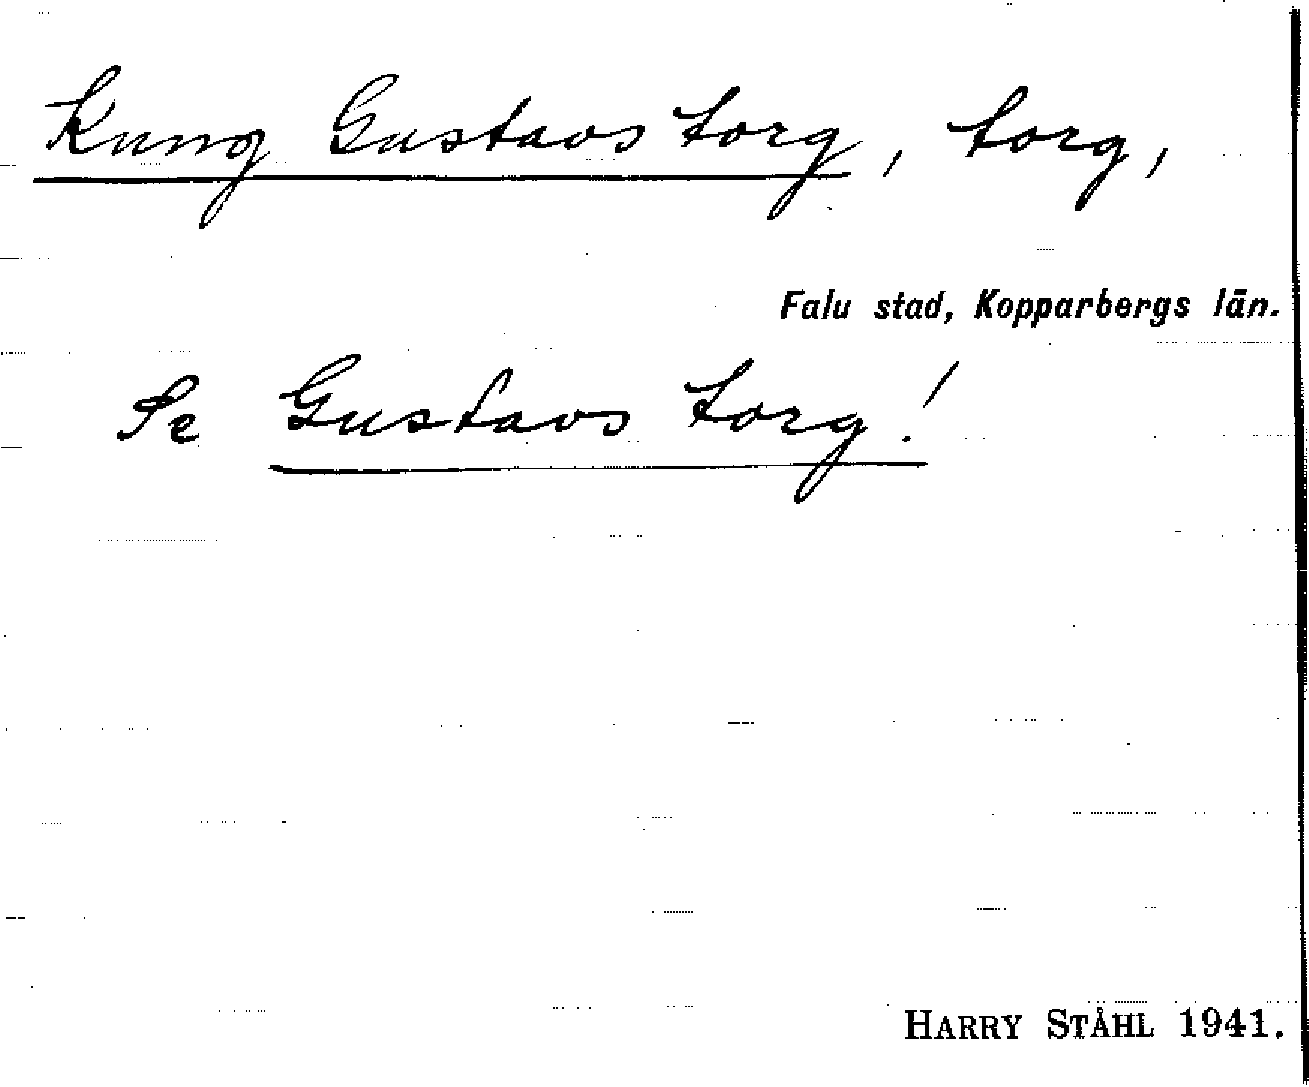 Kung Gustavs torg, torg,
Falu stad, Kopparbergs län.
Se Gustavs torg!
HARRY STÅHL 1941.